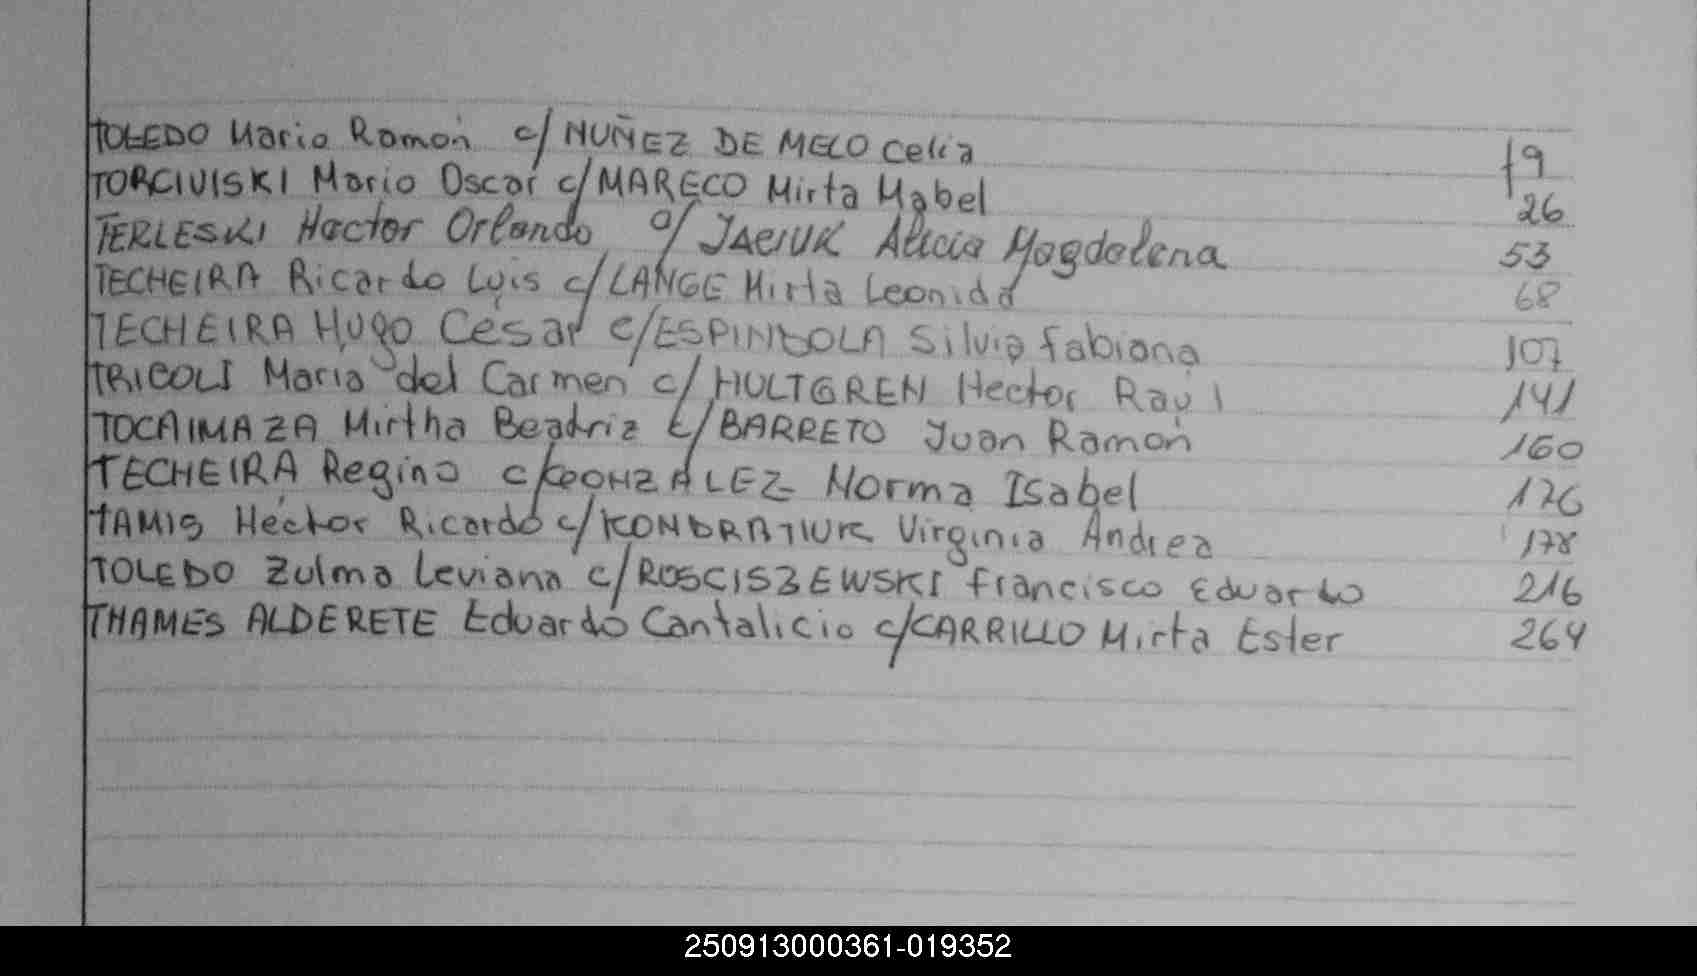 TOLEDO Mario Ramón c/ NUÑEZ DE MELO Celia f9
TORCIUISKI Mario Oscar c/ MARECO Mirta Mabel 26
TERLESKI Hector Orlando c/ JACIUK Alicia Magdalena 53
TECHEIRA Ricardo Luis c/ LANGE Mirta Leonida 68
TECHEIRA Hugo César c/ ESPINDOLA Silvia Fabiana 107
TRICOLI Maria del Carmen c/ HULTGREN Hector Raúl 141
TOCAIMAZA Mirtha Beatriz c/ BARRETO Juan Ramón 160
TECHEIRA Regino c/ GONZALEZ Norma Isabel 176
TAMIS Héctor Ricardo c/ KONDRATIUK Virginia Andrea 178
TOLEDO Zulma Leviana c/ ROSCISZEWSKI Francisco Eduardo 216
THAMES ALDERETE Eduardo Cantalicio c/ CARRILLO Mirta Ester 264
250913000361-019352